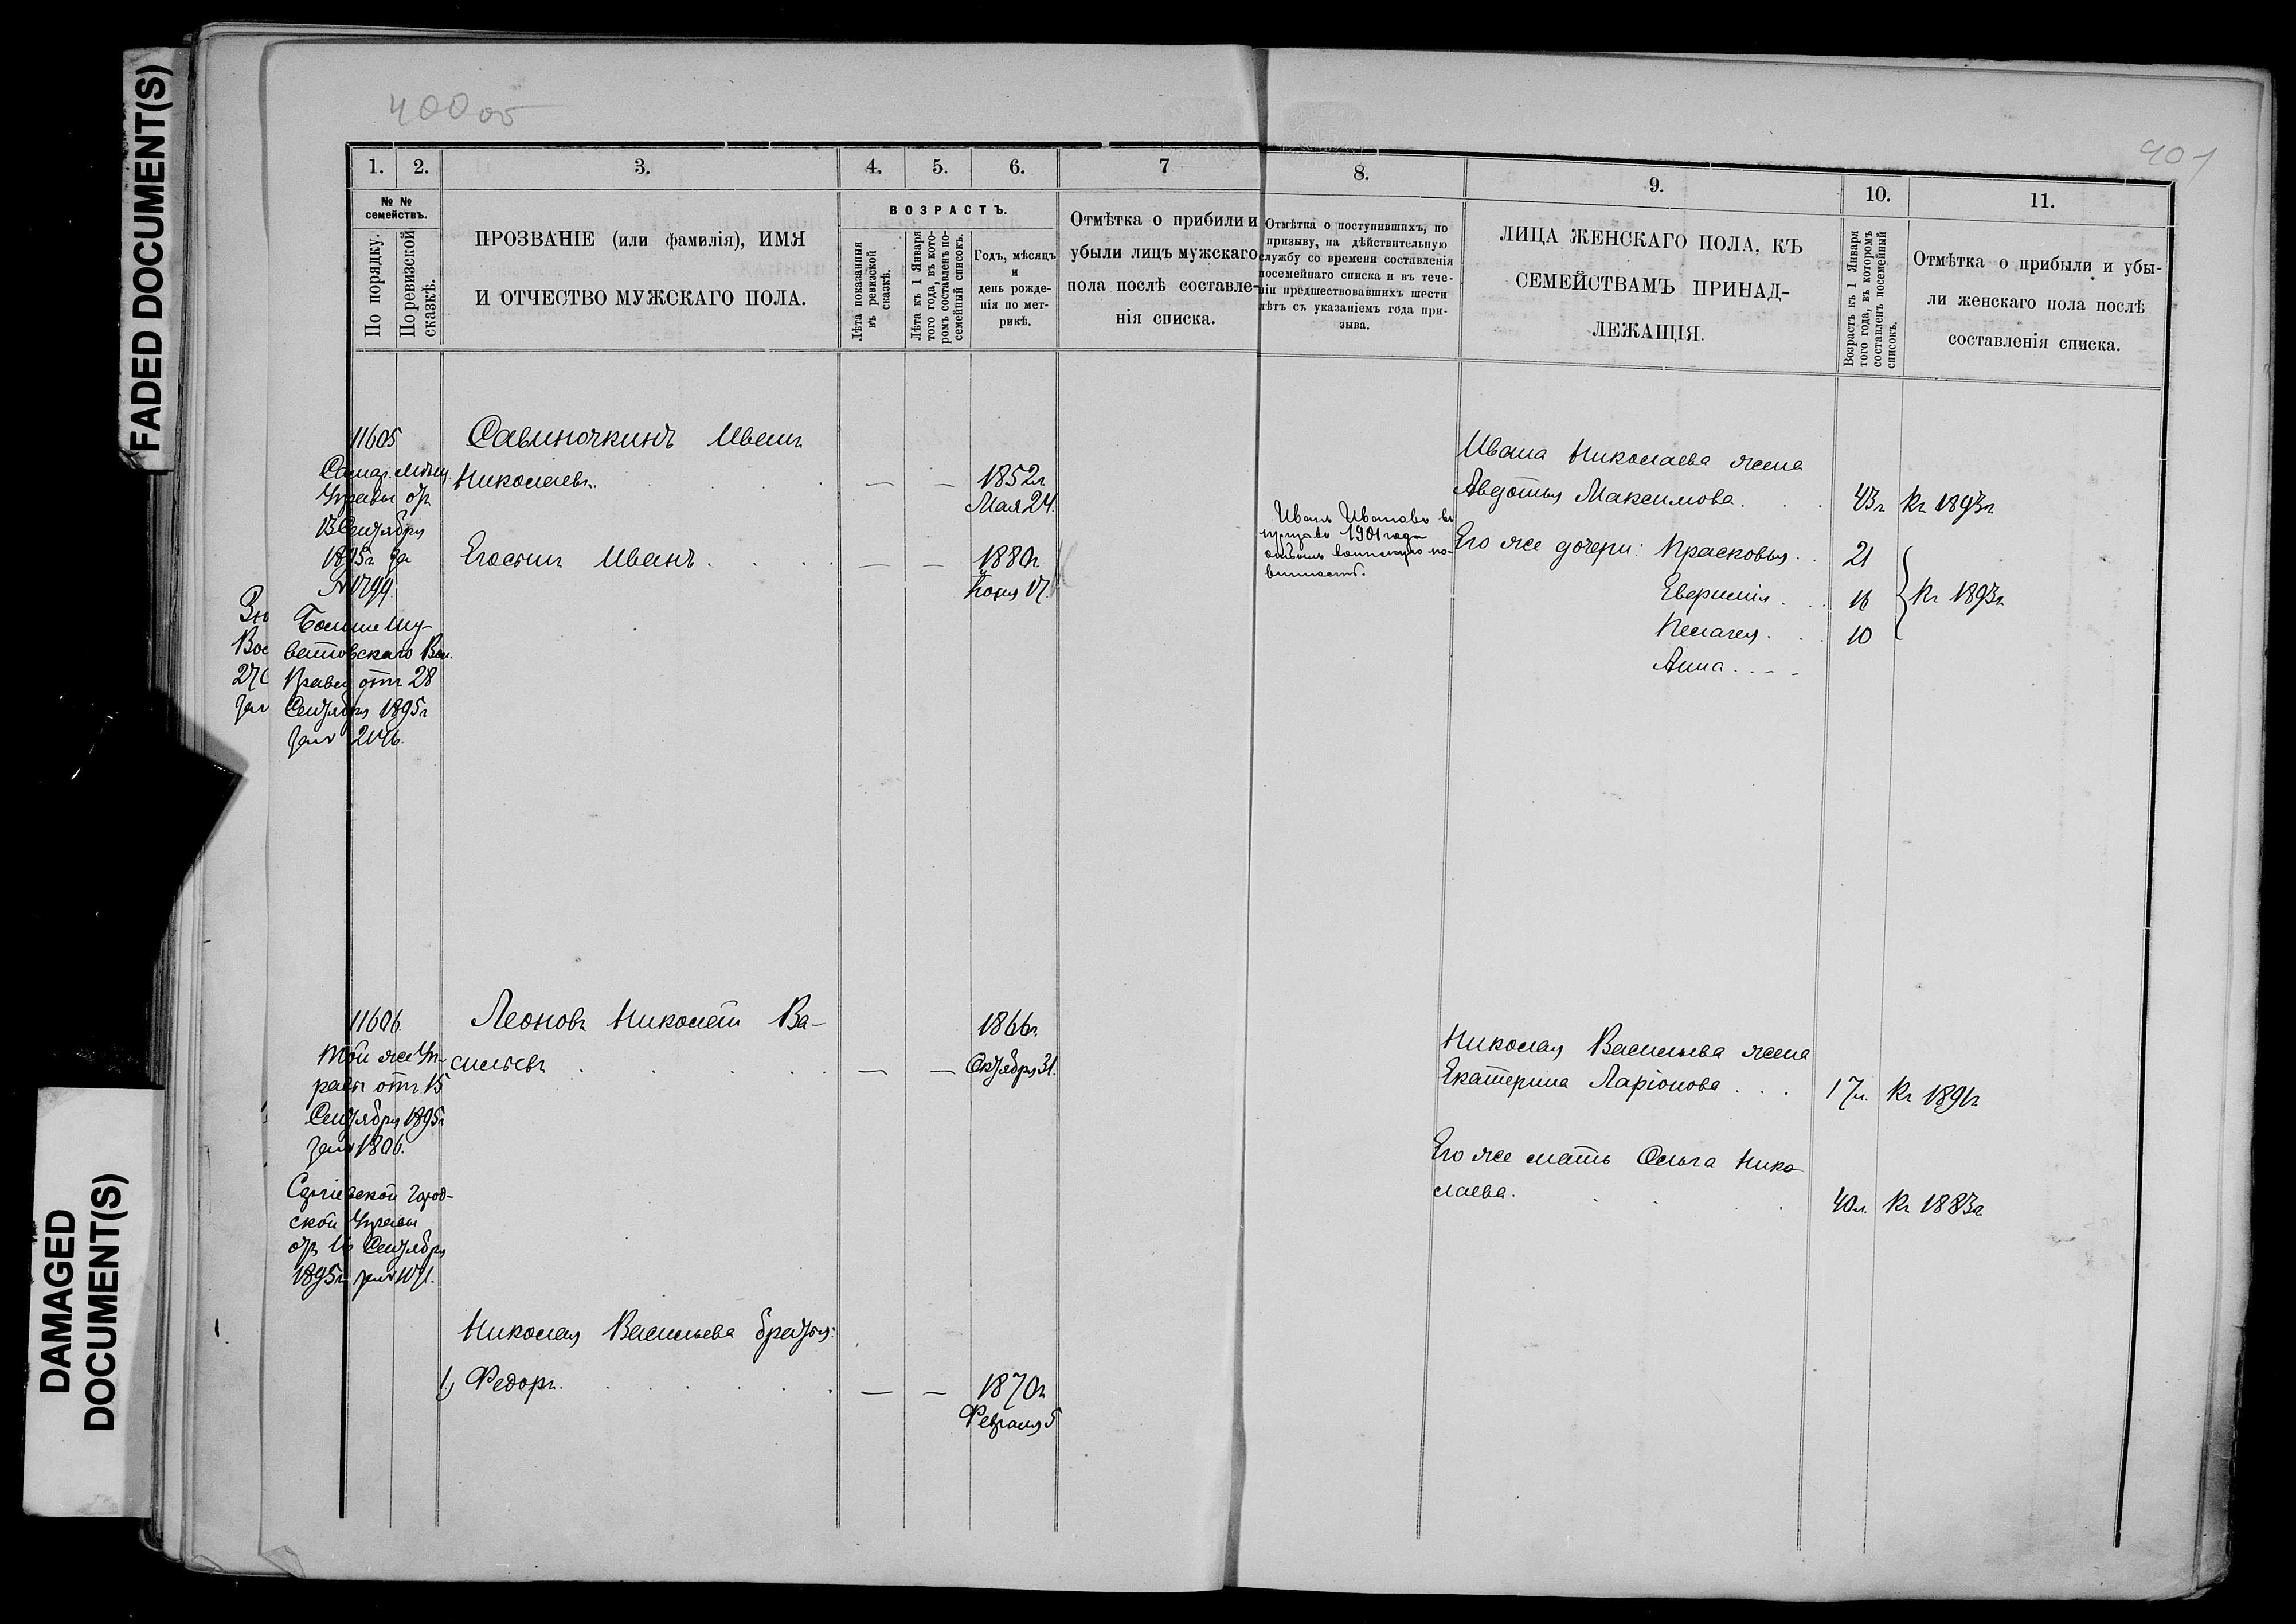 FADED DOCUMENT(S)
DAMAGED
DOCUMENT(S)
400 об
401
1.
2.
3.
4.
5.
6.
7
8.
9.
10.
11.
№ №
семействъ.
По порядку.
По ревизской
сказкѣ.
ПРОЗВАНІЕ (или фамилія), ИМЯ
И ОТЧЕСТВО МУЖСКАГО ПОЛА.
ВОЗРАСТЪ.
Лѣта показанныя
въ ревизской
сказкѣ.
Лѣта къ 1 Января
того года, въ кото-
ромъ составленъ по-
семейный списокъ.
Годъ, мѣсяцъ
и
день рожде-
нія по мет-
рикѣ.
Отмѣтка о прибыли и
убыли лицъ мужскаго
пола послѣ составле-
нія списка.
Отмѣтка о поступившихъ, по
призыву, на дѣйствительную
службу со времени составленія
посемейнаго списка и въ тече-
ніи предшествовавшихъ шести
лѣтъ съ указаніемъ года при-
зыва.
ЛИЦА ЖЕНСКАГО ПОЛА, КЪ
СЕМЕЙСТВАМЪ ПРИНАД-
ЛЕЖАЩІЯ.
Возрастъ къ 1 Января
того года, въ которомъ
составленъ посемейный
списокъ.
Отмѣтка о прибыли и убы-
ли женскаго пола послѣ
составленія списка.
11605
Самар. мѣщ.
Управы отъ
13 Сентября
1895г. за
№ 1799.
Вол.
Правл. отъ 28
Сентября 1895г
за №
Савиночкинъ Иванъ
Николаевъ.
— — 1852г.
Мая 24.
Его сынъ Иванъ
— — 1880г.
17.
Иванъ Ивановъ въ
1901 года
отбылъ воинскую по-
винность.
Ивана Николаева жена
Авдотья Максимова. 43г. Къ 1893г.
Его же дочери: Прасковья. 21
16
Пелагея. 10
Къ 1893г.
Анна. - -
11606.
Той же Уп-
равы отъ 15
Сентября 1895г
за № 1806.
Сергіевской Город-
ской Управы
отъ 16 Сентября
1895г. за №
Леоновъ Николай Ва-
сильевъ
— — 1866г.
Октября 31.
Николая Васильева жена
Екатерина Ларіонова 17л. Къ 1891г.
Его же мать Ольга Нико-
лаева. 40л. Къ 1883г.
Николая Васильева братья:
1) Федоръ. — — 1870г.
Февраля 5